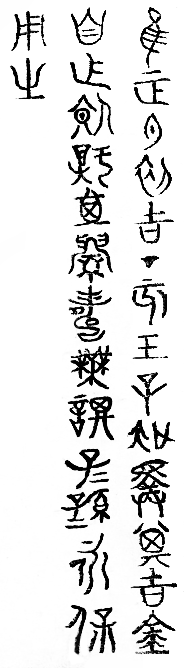 隹正月初吉丁亥王子擇其吉金
自乍飤鼾其眉壽無諆子孫永保
用之